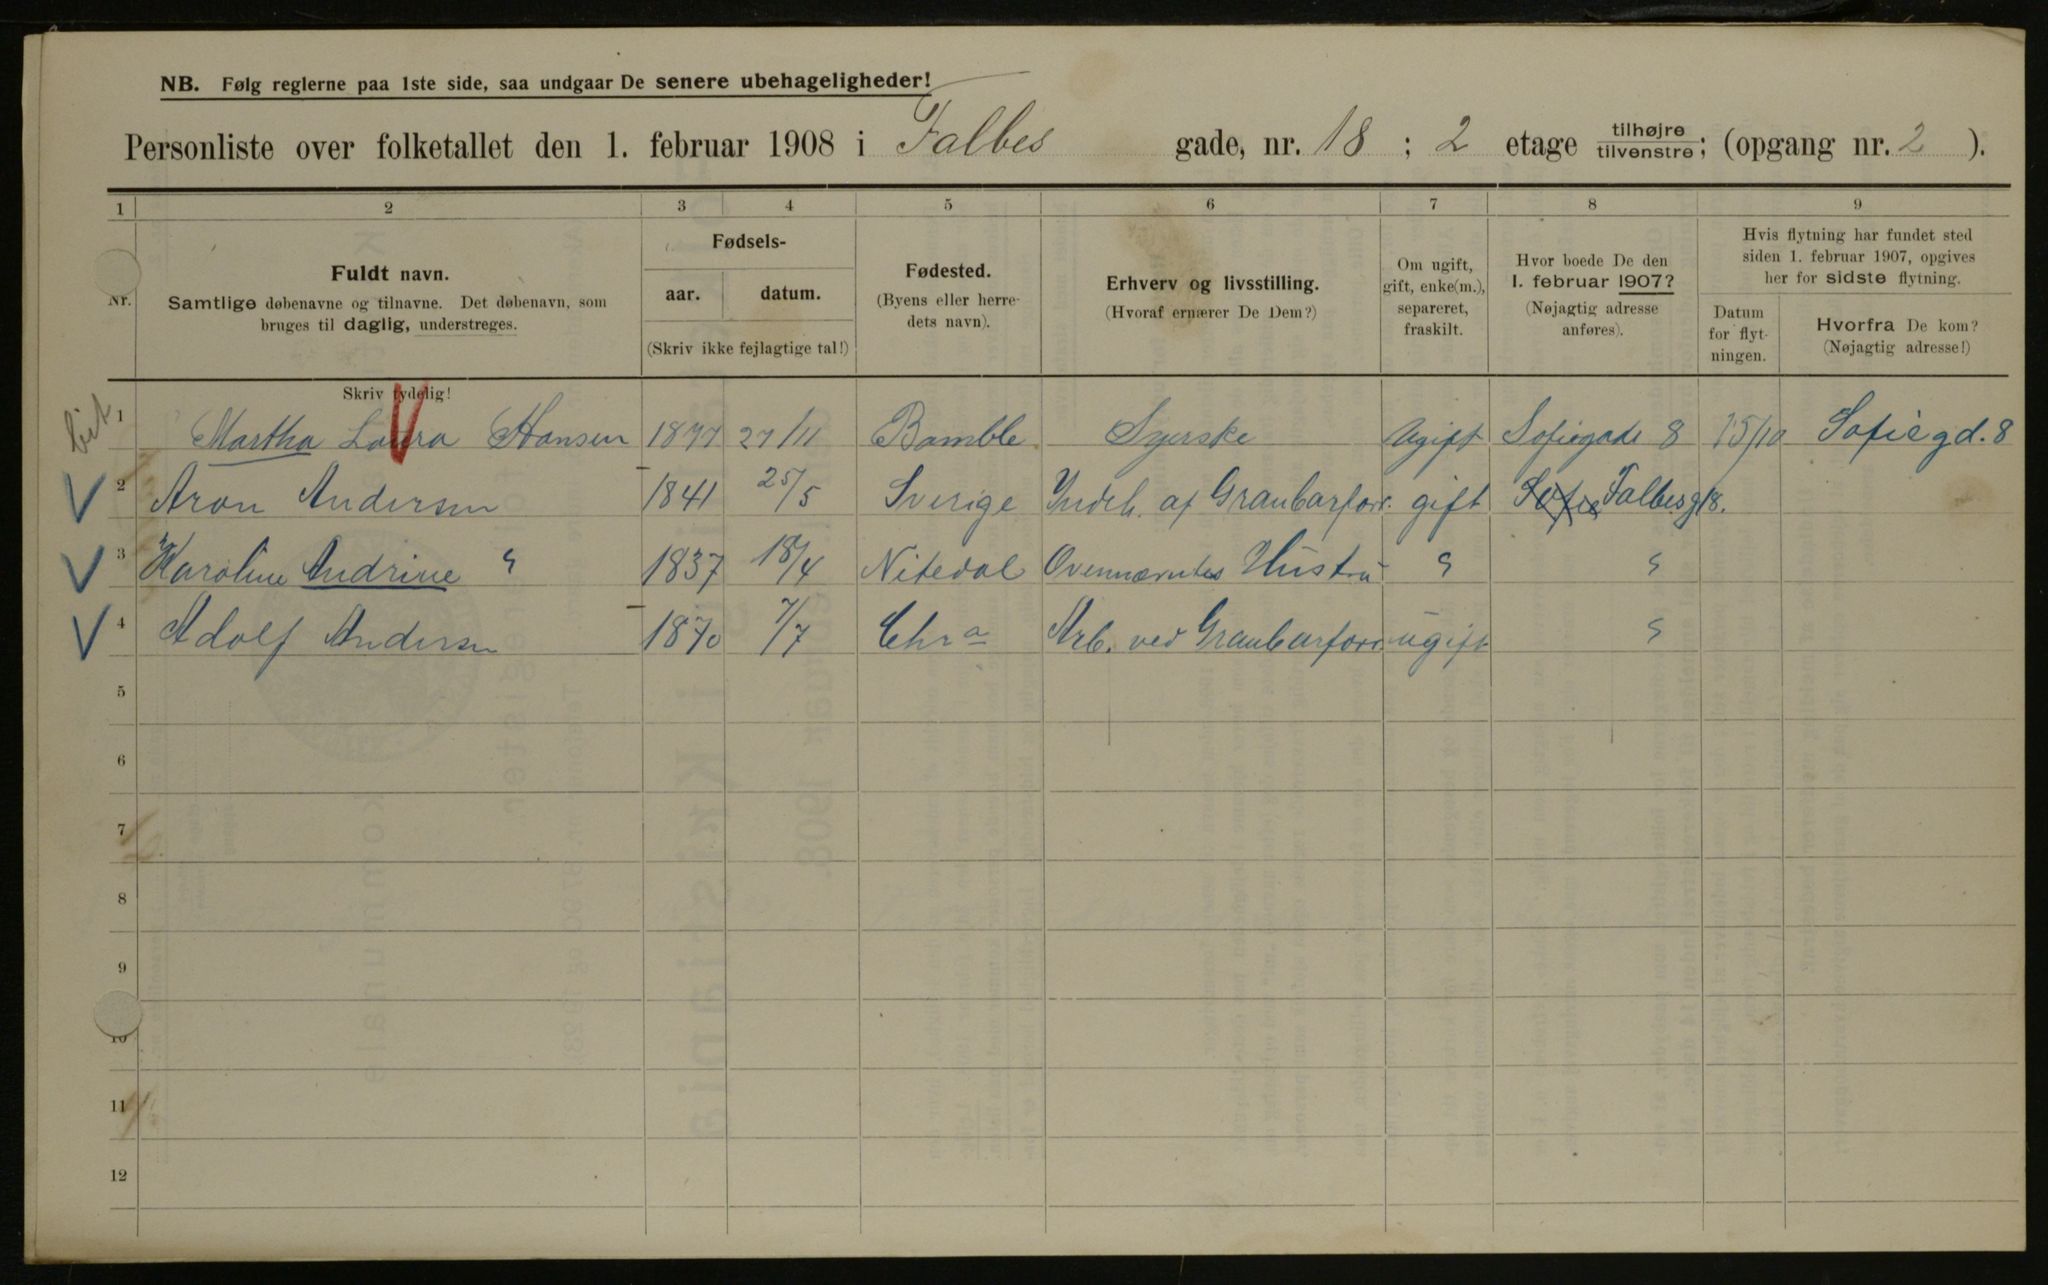 NB. Følg reglerne paa 1ste side, saa undgaar De senere ubehageligheder!
Personliste over folketallet den 1. februar 1908 i Falbes gade, nr. 18 ; 2 etage tilhøjre tilvenstre; (opgang nr. 2 ).
1 2 3 4 5 6 7 8 9
Nr.
Fuldt navn.
Samtlige døbenavne og tilnavne. Det døbenavn, som
bruges til daglig, understreges.
Skriv tydelig!
Fødsels-
aar. datum.
(Skriv ikke fejlagtige tal!)
Fødested.
(Byens eller herre-
dets navn).
Erhverv og livsstilling.
(Hvoraf ernærer De Dem?)
Om ugift,
gift, enke(m.),
separeret,
fraskilt.
Hvor boede De den
1. februar 1907?
(Nøjagtig adresse
anføres).
Hvis flytning har fundet sted
siden 1. februar 1907, opgives
her for sidste flytning.
Datum
for flyt-
ningen.
Hvorfra De kom?
(Nøjagtig adresse!)
1 Martha Laura Hansen 1877 27/11 Bamble Syerske Ugift Sofiegade 8 15/10 Sofiegd. 8
2 Aron Andersen 1841 25/5 Sverige Indeh. af Graubarforr. gift Sofie Falbesg 18.
3 Karoline Andrine " 1837 18/4 Nitedal Ovennævntes Hustru " "
4 Adolf Andersen 1870 7/7 Chra Arb. ved Graubarforr. ugift "
5
6
7
8
9
10
11
12